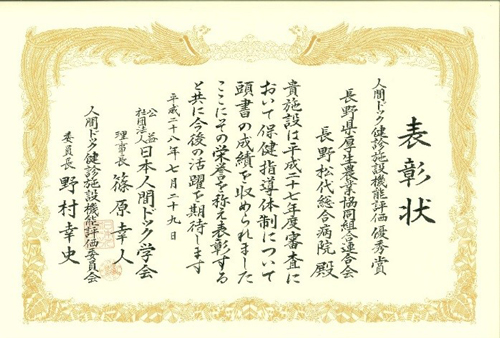 表彰状
人間ドック健診施設機能評価優秀賞
長野県厚生農業協同組合連合会
長野松代総合病院 殿
貴施設は平成二十七年度審査に
おいて保健指導体制について
頭書の成績を収められました
ここにその栄誉を称え表彰する
と共に今後の活躍を期待します
平成二十八年七月二十九日
公益社団法人 日本人間ドック学会
理事長 篠原幸人
人間ドック健診施設機能評価委員会
委員長 野村幸史